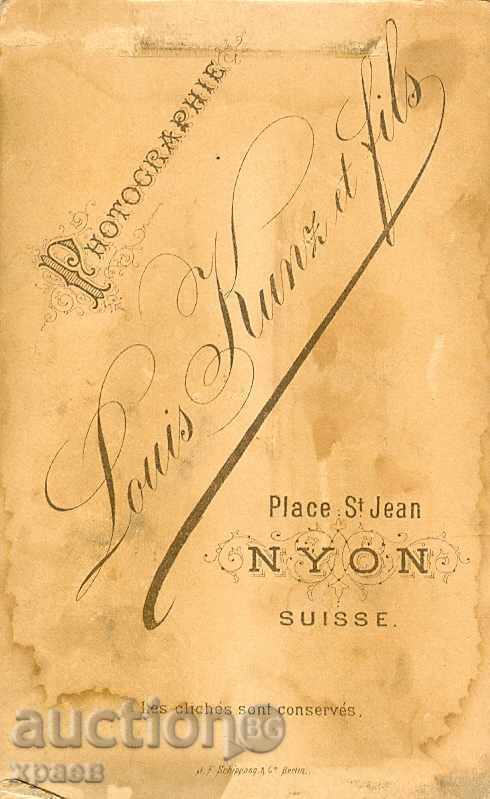 PHOTOGRAPHIE
Louis Kunz et fils
Place St Jean
NYON
SUISSE.
Les clichés sont conservés.
auction BG
храев
J. F. Schippang & Co Berlin.